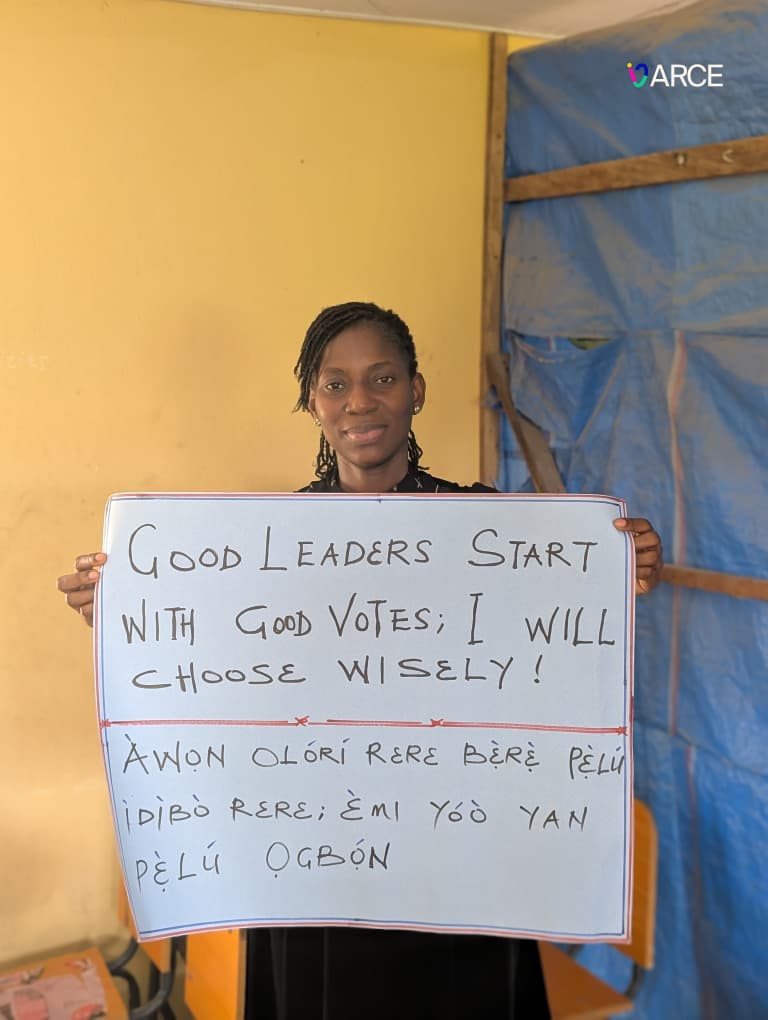 ARCE
GOOD LEADERS START
WITH GOOD VOTES; I WILL
CHOOSE WISELY!
ÀWỌN OLÓRÍ RERE BẸ̀RẸ̀ PẸ̀LÚ
ÌDÌBÒ RERE; ÈMI YÓÒ YAN
PẸ̀LÚ ỌGBỌ́N